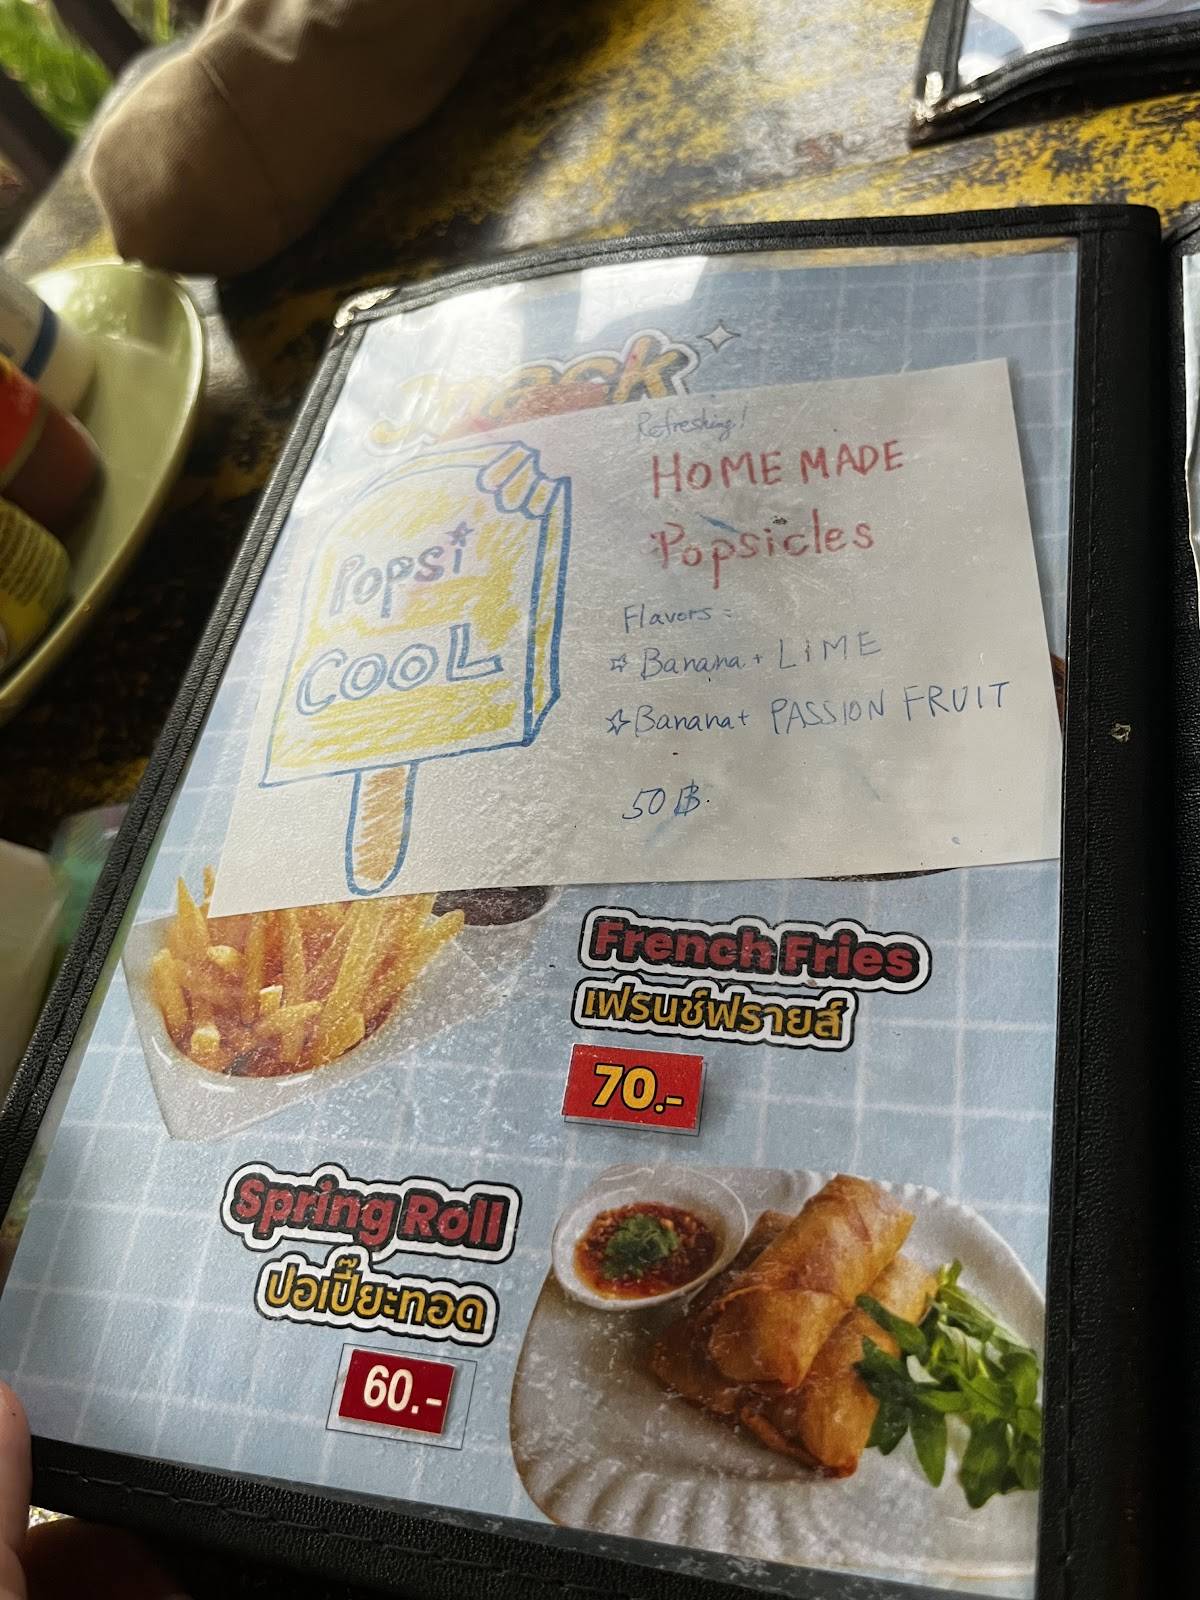 Snack
Refreshing!
HOME MADE
Popsicles
Popsi
COOL
Flavors:
Banana + LIME
Banana + PASSION FRUIT
50 ฿.
French Fries
เฟรนช์ฟรายส์
70.-
Spring Roll
ปอเปี๊ยะทอด
60.-